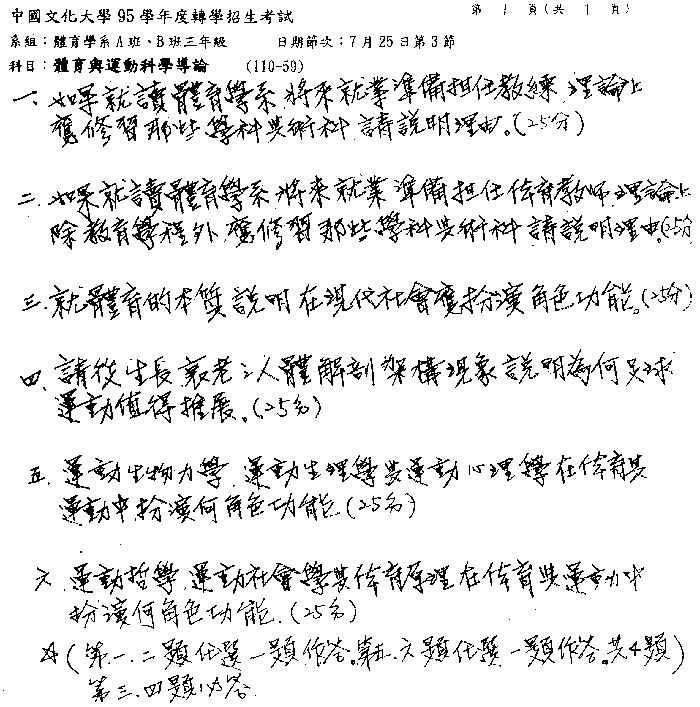 中國文化大學95學年度轉學招生考試 第 1 頁(共 1 頁)
系組：體育學系A班、B班三年級 日期節次：7月25日第3節
科目：體育與運動科學導論 (110-59)
一、如果就讀體育學系，將來就業準備担任教練，理論上
應修習那些學科与術科，請說明理由。(25分)
二、如果就讀體育學系，將來就業準備担任体育教師，理論上
除教育學程外，應修習那些學科与術科，請說明理由。(25分)
三、就體育的本質，說明在現代社會應扮演角色功能。(25分)
四、請從生長衰老之人體解剖架構現象，說明為何足球
運動值得推展。(25分)
五、運動生物力學、運動生理學與運動心理學在体育與
運動中，扮演何角色功能。(25分)
六、運動哲學、運動社會學與体育原理在体育與運動中
扮演何角色功能。(25分)
(第一、二題任選一題作答。第五、六題任選一題作答。共4題)
第三、四題必答